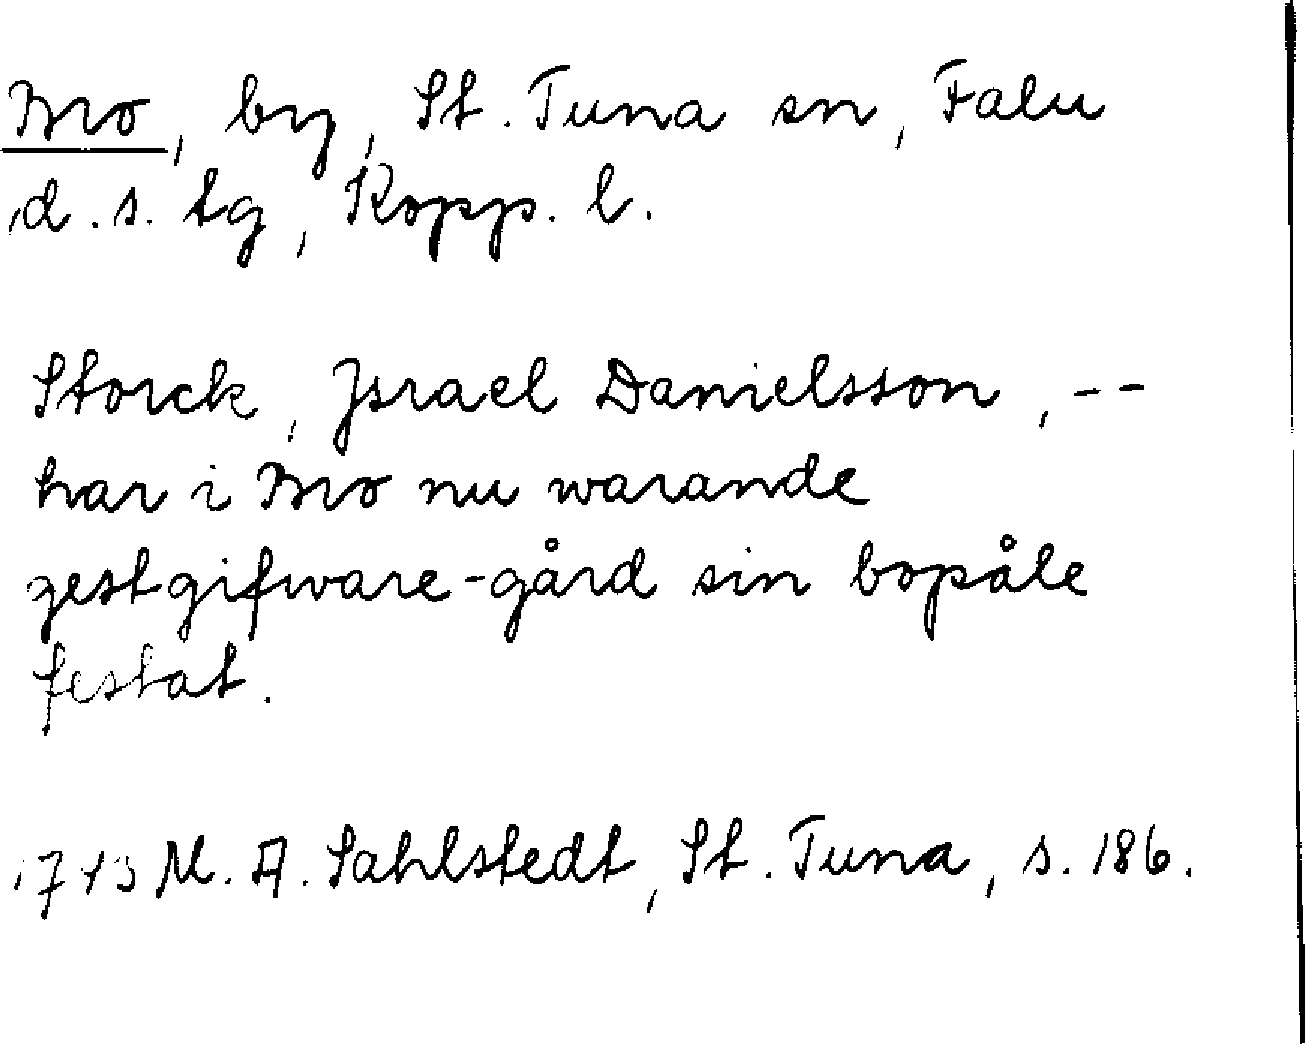 Bro, by, St. Tuna sn, Falu
d. s. tg, Kopp. l.
Storck, Jsrael Danielsson, --
har i Bro nu warande
gestgifware-gård sin bopåle
festat.
1743 M. A. Sahlstedt, St. Tuna, s. 186.